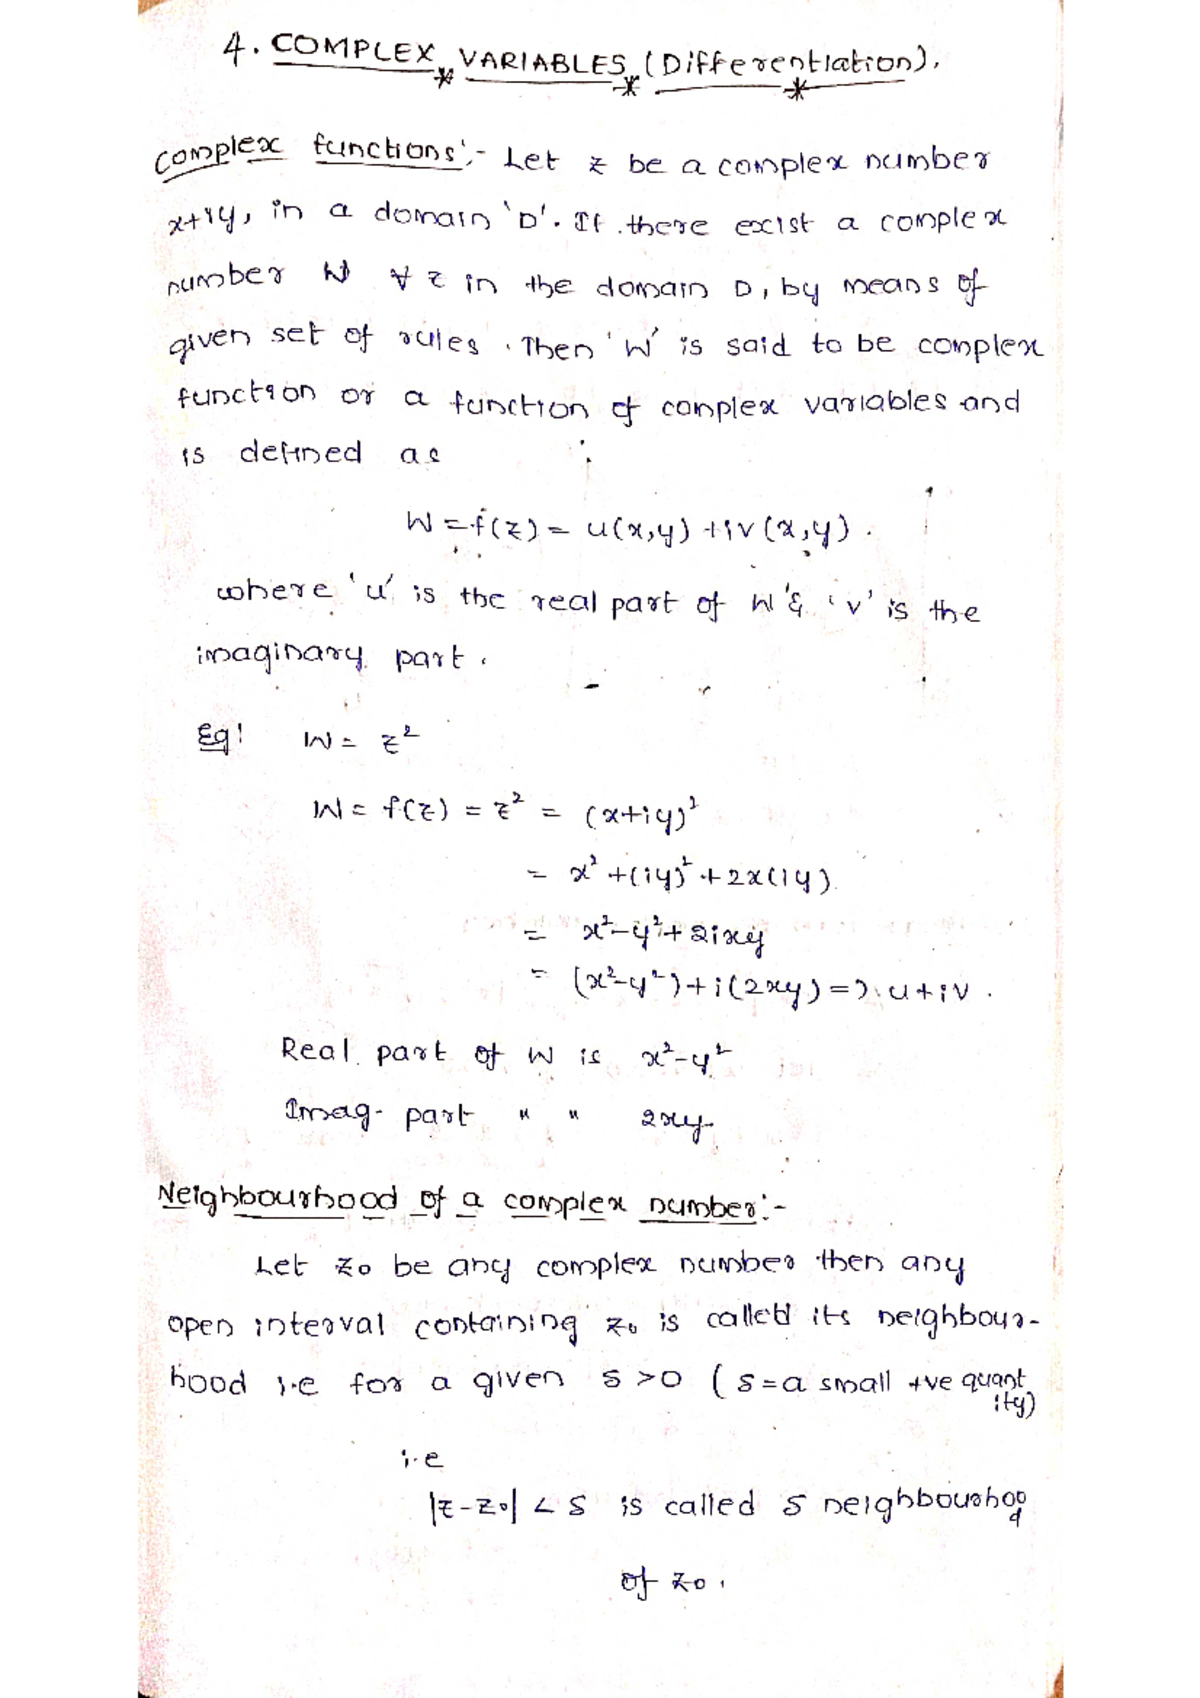 4. COMPLEX VARIABLES (Differentiation).
Complex functions:- Let z be a complex number
x+iy, in a domain 'D'. If there exist a complex
number W ∀ z in the domain D, by means of
given set of rules. Then 'W' is said to be complex
function or a function of complex variables and
is defined as
W = f(z) = u(x,y) + iv(x,y).
where 'u' is the real part of W & 'v' is the
imaginary part.
Eg: W = z²
W = f(z) = z² = (x+iy)²
= x² + (iy)² + 2x(iy).
= x²-y² + 2ixy
= (x²-y²) + i(2xy) => u+iv.
Real part of W is x²-y²
Imag- part " " 2xy.
Neighbourhood of a complex number:-
Let z₀ be any complex number then any
open interval containing z₀ is called its neighbour-
hood i.e for a given δ >0 (δ = a small +ve quant
ity)
i.e
|z-z₀| < δ is called δ neighbourhoo
d
of z₀.